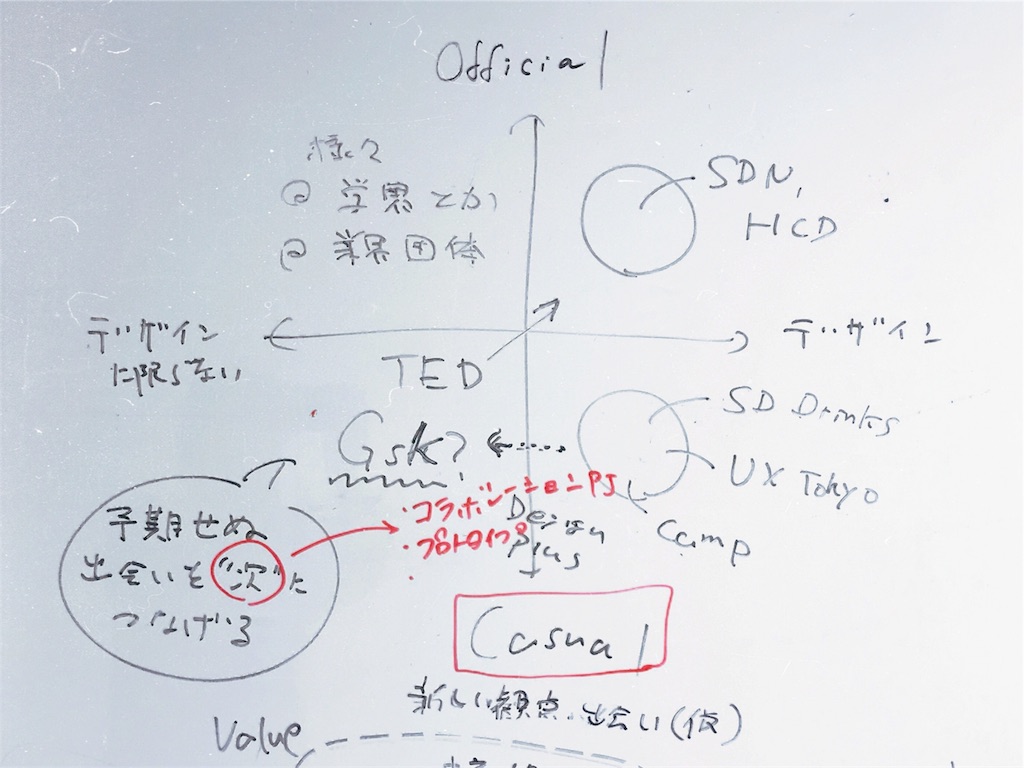 Official
様々
@ 学界とか
@ 業界団体
SDN,
HCD
デザイン
に限らない
デザイン
TED
SD Drinks
UX Tokyo
Camp
Gsk?
・コラボレーションPJ
・プロトタイプ
Design
Plus
予期せぬ
出会いを"次"に
つなげる
Casual
新しい観点、出会い(仮)
Value